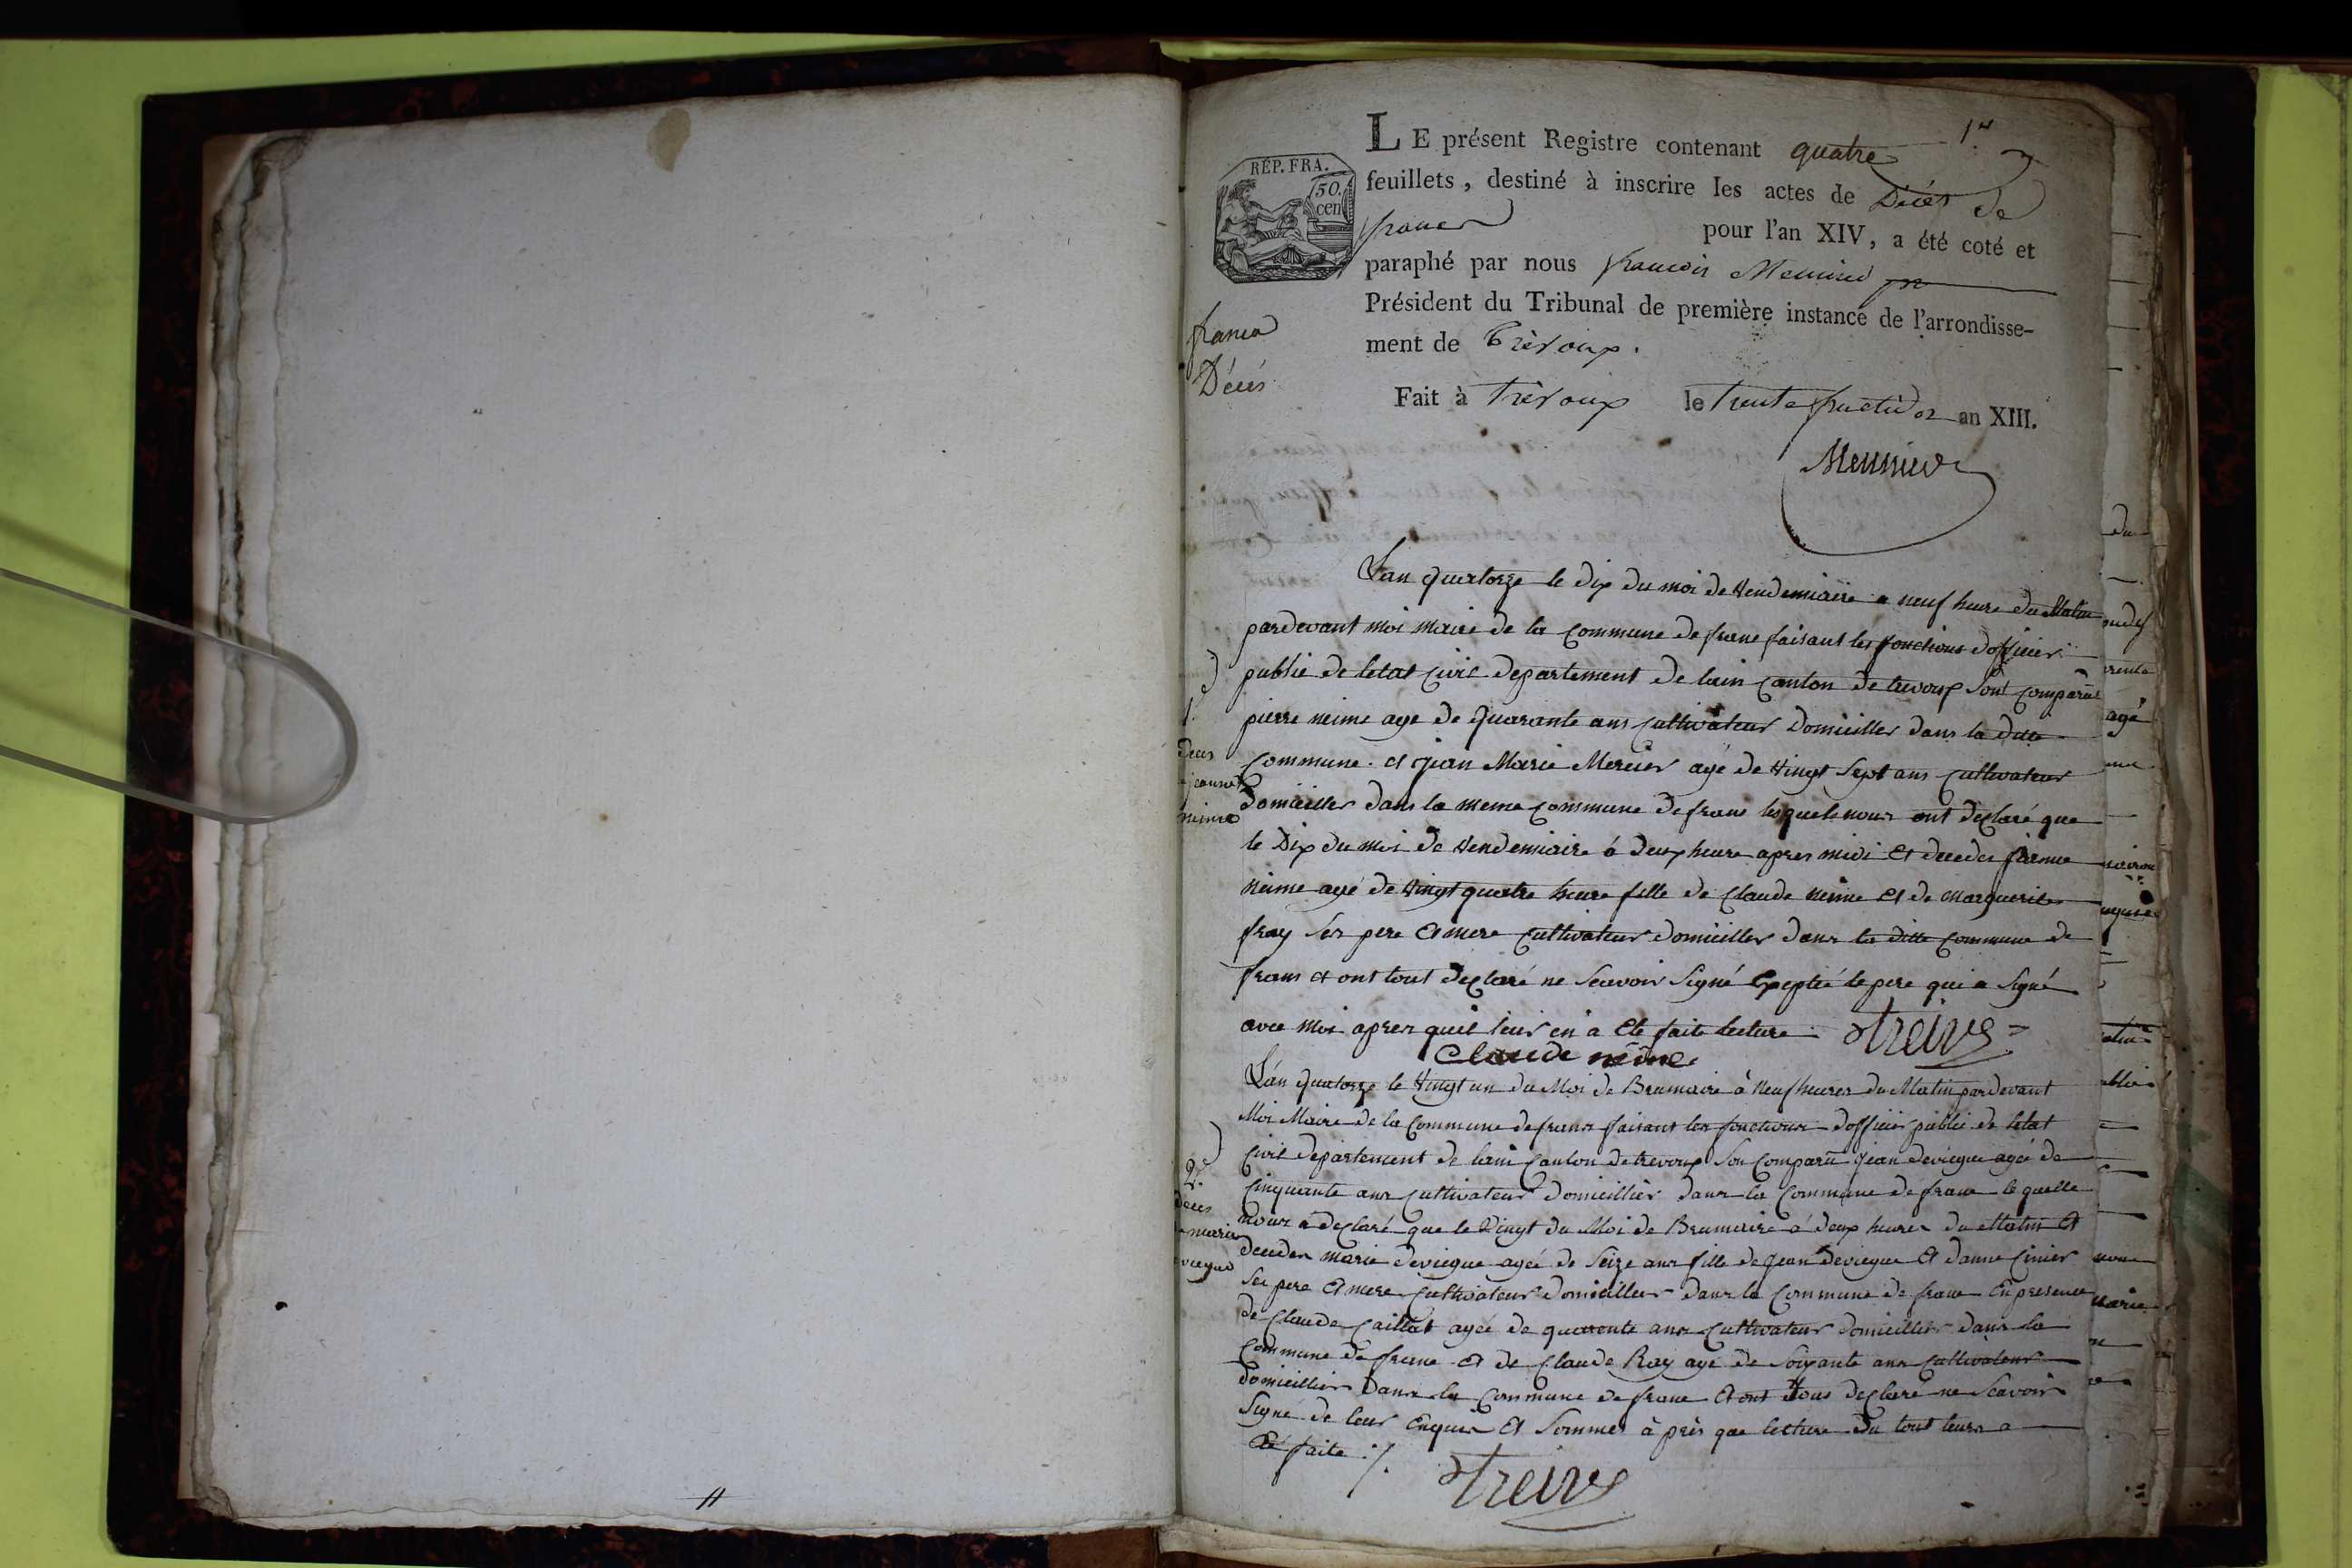 1er
LE présent Registre contenant quatre
feuillets, destiné à inscrire les actes de Décès de
frans pour l'an XIV, a été coté et
paraphé par nous francois Meunier
Président du Tribunal de première instance de l'arrondisse-
ment de Trévoux.
Fait à Trévoux le trente fructidor an XIII.
Meunier
RÉP. FRA.
50.
cen
frans
Décès
Lan quatorze le dix du moi de Vendemiaire a neuf heure du Matin
pardevant moi maire de la Commune de frans faisant les fonctions dofficier
public de letat Civil departement de lain Canton de trevoux sont comparus
pierre neime age de quarante ans Cultivateur Domicillier dans la ditte
Commune et jean Marie Mercier agé de Vingt Sept ans Cultivateur
Domicillier dans la meme Commune de frans lesquels nous ont declaré que
le Dix du moi de Vendemiaire à deux heure apres midi Et deceder
neime agé de Vingt quatre heure fille de Claude neime Et de Marguerite
fray Ses pere Et mere Cultivateur domicillier dans la ditte Commune de
frans et ont tout declaré ne Scavoir Signé Exepté le pere qui a Signé
avec moi apres quil leur en a Eté faite lecture Treive
Claude néime
1.
deces
jeanne
neime
Lan quatorze le Vingt un du Moi de Brumaire à Neuf heures du Matin pardevant
Moi Maire de la Commune de frans faisant les fonctions dofficier public de letat
Civil departement de lain Canton de trevoux Son Comparu jean deviegue ageé de
Cinquante ans Cultivateur domicillier dans la Commune de frans le quelle
nous a declaré que le Vingt du Moi de Brumaire à deux heures du Matin Et
deceder marie deviegue ageé de Seize ans fille de jean deviegue Et danne Cinier
Ses pere Et mere Cultivateur domicillier dans la Commune de frans En presence
de Claude Caillat ageé de quarente ans Cultivateur domicillier dans la
Commune de frans et de Claude Ray age de Soixante ans Cultivateur
domicillier Dans la Commune de frans Et ont Tous declaré ne Scavoir
Signé de leur Enquis Et Sommes à près que lecture du tout leurs a
Eté faite ./.
Treive
2e
deces
marie